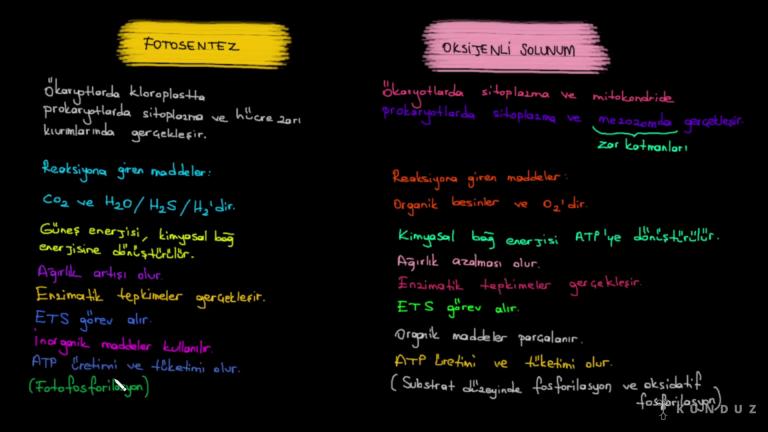 FOTOSENTEZ
Ökaryotlarda kloroplastta
prokaryotlarda sitoplazma ve hücre zarı
kıvrımlarında gerçekleşir.
Reaksiyona giren maddeler:
CO2 ve H2O / H2S / H2'dir.
Güneş enerjisi, kimyasal bağ
enerjisine dönüştürülür.
Ağırlık artışı olur.
Enzimatik tepkimeler gerçekleşir.
ETS görev alır.
İnorganik maddeler kullanılır.
ATP üretimi ve tüketimi olur.
(Fotofosforilasyon)
OKSİJENLİ SOLUNUM
Ökaryotlarda sitoplazma ve mitokondride
prokaryotlarda sitoplazma ve mezozomda gerçekleşir.
zar katmanları
Reaksiyona giren maddeler:
Organik besinler ve O2'dir.
Kimyasal bağ enerjisi ATP'ye dönüştürülür.
Ağırlık azalması olur.
Enzimatik tepkimeler gerçekleşir.
ETS görev alır.
Organik maddeler parçalanır.
ATP üretimi ve tüketimi olur.
(Substrat düzeyinde fosforilasyon ve oksidatif
fosforilasyon)
KUNDUZ